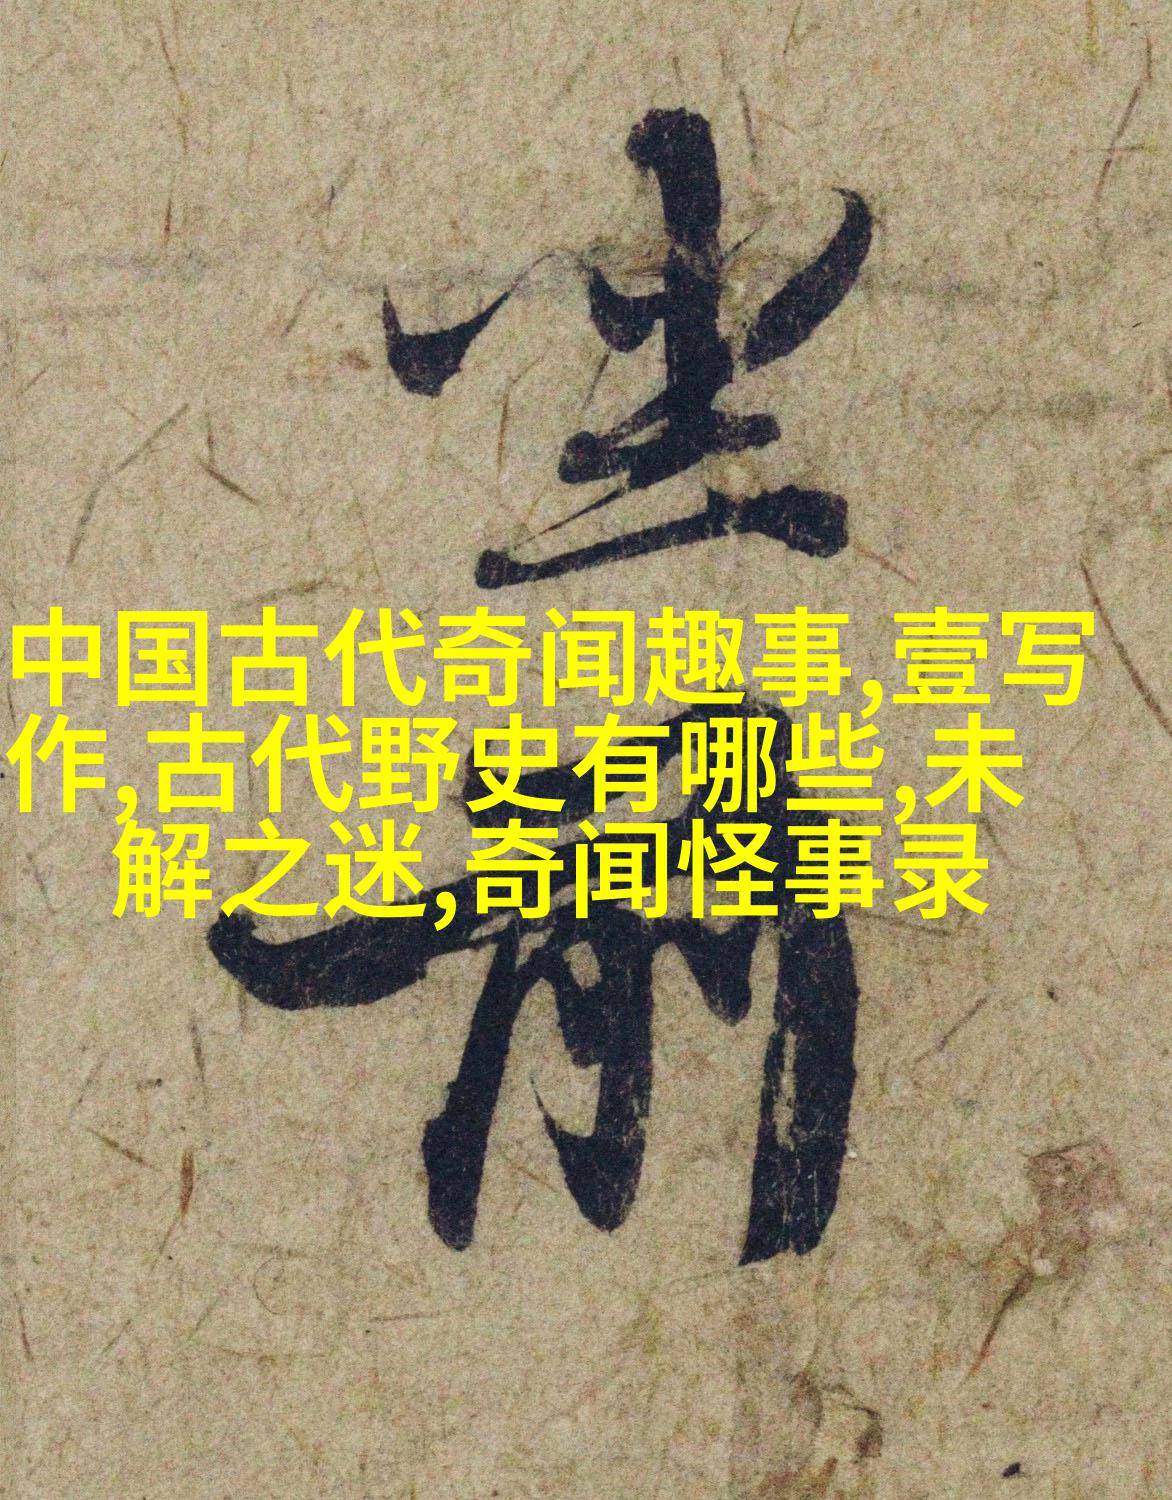 坐
前
中国古代奇闻趣事,壹写
作,古代野史有哪些,未
解之迷,奇闻怪事录